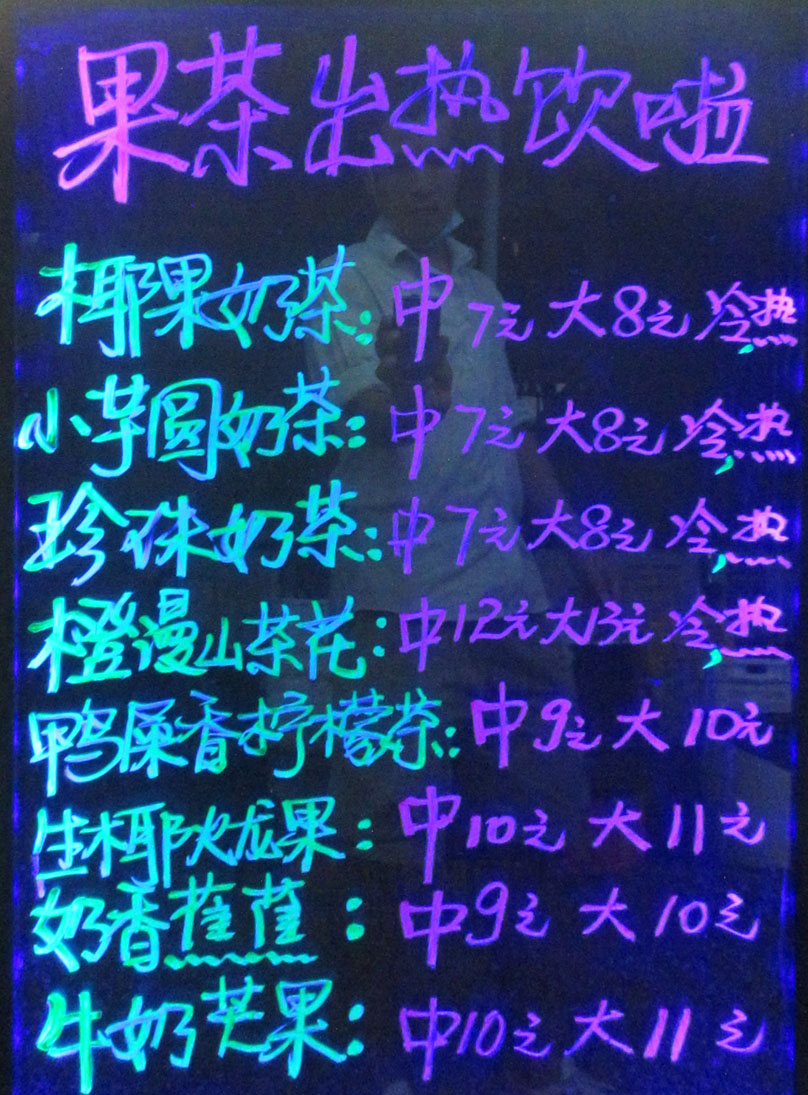 果茶出热饮啦
椰果奶茶:中7元大8元冷热
小芋圆奶茶:中7元大8元冷热
珍珠奶茶:中7元大8元冷热
橙漫山茶花:中12元大13元冷热
鸭屎香柠檬茶:中9元大10元
生椰火龙果:中10元大11元
奶香蕉蕉:中9元大10元
牛奶芒果:中10元大11元